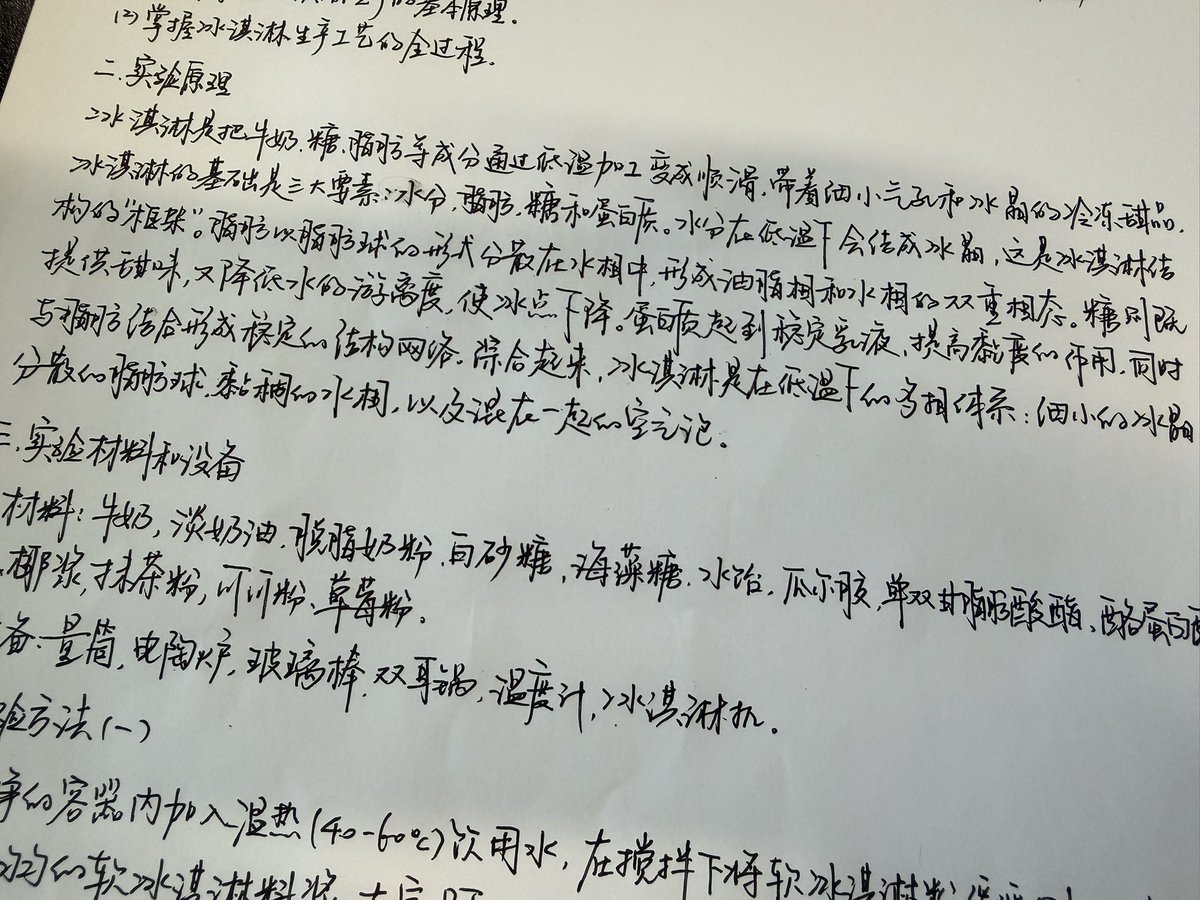 的基本原理.
(2)掌握冰淇淋生产工艺的全过程.
二.实验原理
冰淇淋是把牛奶.糖.脂肪等成分通过低温加工变成顺滑.带着细小气孔和冰晶的冷冻甜品.
冰淇淋的基础是三大要素:水分,脂肪.糖和蛋白质。水分在低温下会结成冰晶,这是冰淇淋结
构的“框架”。脂肪以脂肪球的形式分散在水相中,形成油脂相和水相的双重相态。糖则既
提供甜味,又降低水的游离度,使冰点下降。蛋白质起到稳定乳液,提高黏度的作用,同时
与脂肪结合形成稳定的结构网络。综合起来,冰淇淋是在低温下的多相体系:细小的冰晶
分散的脂肪球.黏稠的水相,以及混在一起的空气泡。
三.实验材料和设备
材料:牛奶,淡奶油.脱脂奶粉.白砂糖,海藻糖.水饴.瓜尔胶,单双甘脂肪酸酯、酪蛋白酸
椰浆,抹茶粉,可可粉、草莓粉.
备:量筒,电陶炉,玻璃棒.双耳锅,温度计,冰淇淋机.
验方法(一)
净的容器内加入温热(40-60℃)饮用水,在搅拌下将软冰淇淋粉
均匀的软冰淇淋料浆